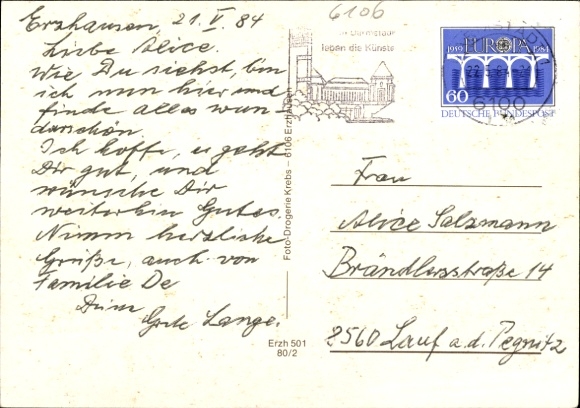 6106
Erzhausen, 21. V. 84
Liebe Alice.
Wie Du siehst, bin
ich nun hier und
finde alles wun-
derschön.
Ich hoffe, es geht
Dir gut, und
wünsche Dir
weiterhin Gutes.
Nimm herzliche
Grüße, auch von
Familie De
Lange.
Foto-Drogerie Krebs – 6106 Erzhausen
Erzh 501
80/2
leben die Künste
1959 EUROPA 1984
60
DEUTSCHE BUNDESPOST
6100
Frau
Alice Salzmann
Brändlersstraße 14
8560 Lauf a. d. Pegnitz